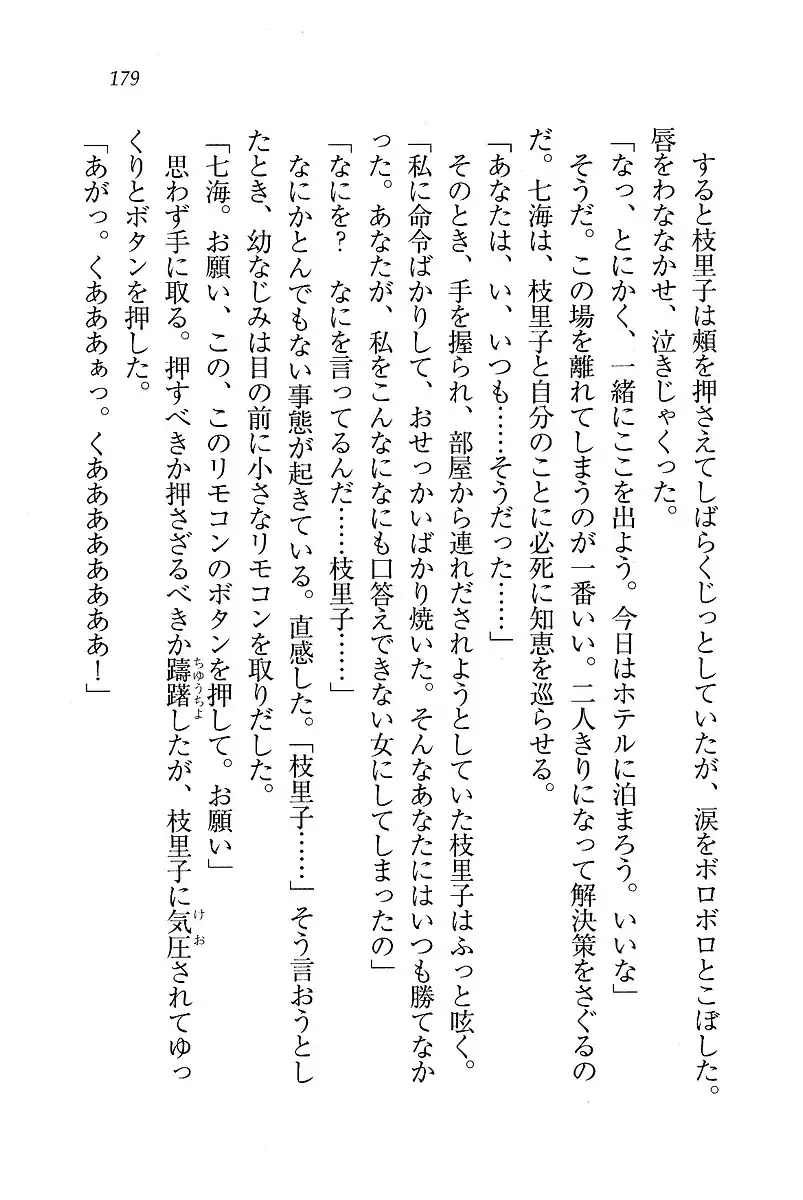 179
　すると枝里子は頰を押さえてしばらくじっとしていたが、涙をボロボロとこぼした。
唇をわななかせ、泣きじゃくった。
「なっ、とにかく、一緒にここを出よう。今日はホテルに泊まろう。いいな」
　そうだ。この場を離れてしまうのが一番いい。二人きりになって解決策をさぐるの
だ。七海は、枝里子と自分のことに必死に知恵を巡らせる。
「あなたは、い、いつも……そうだった……」
　そのとき、手を握られ、部屋から連れだされようとしていた枝里子はふっと呟く。
「私に命令ばかりして、おせっかいばかり焼いた。そんなあなたにはいつも勝てなか
った。あなたが、私をこんなになにも口答えできない女にしてしまったの」
「なにを？　なにを言ってるんだ……枝里子……」
　なにかとんでもない事態が起きている。直感した。「枝里子……」そう言おうとし
たとき、幼なじみは目の前に小さなリモコンを取りだした。
「七海。お願い、この、このリモコンのボタンを押して。お願い」
　思わず手に取る。押すべきか押さざるべきか躊躇ちゆうちよしたが、枝里子に気圧けおされてゆっ
くりとボタンを押した。
「あがっ。くあああぁっ。くああああああああ！」